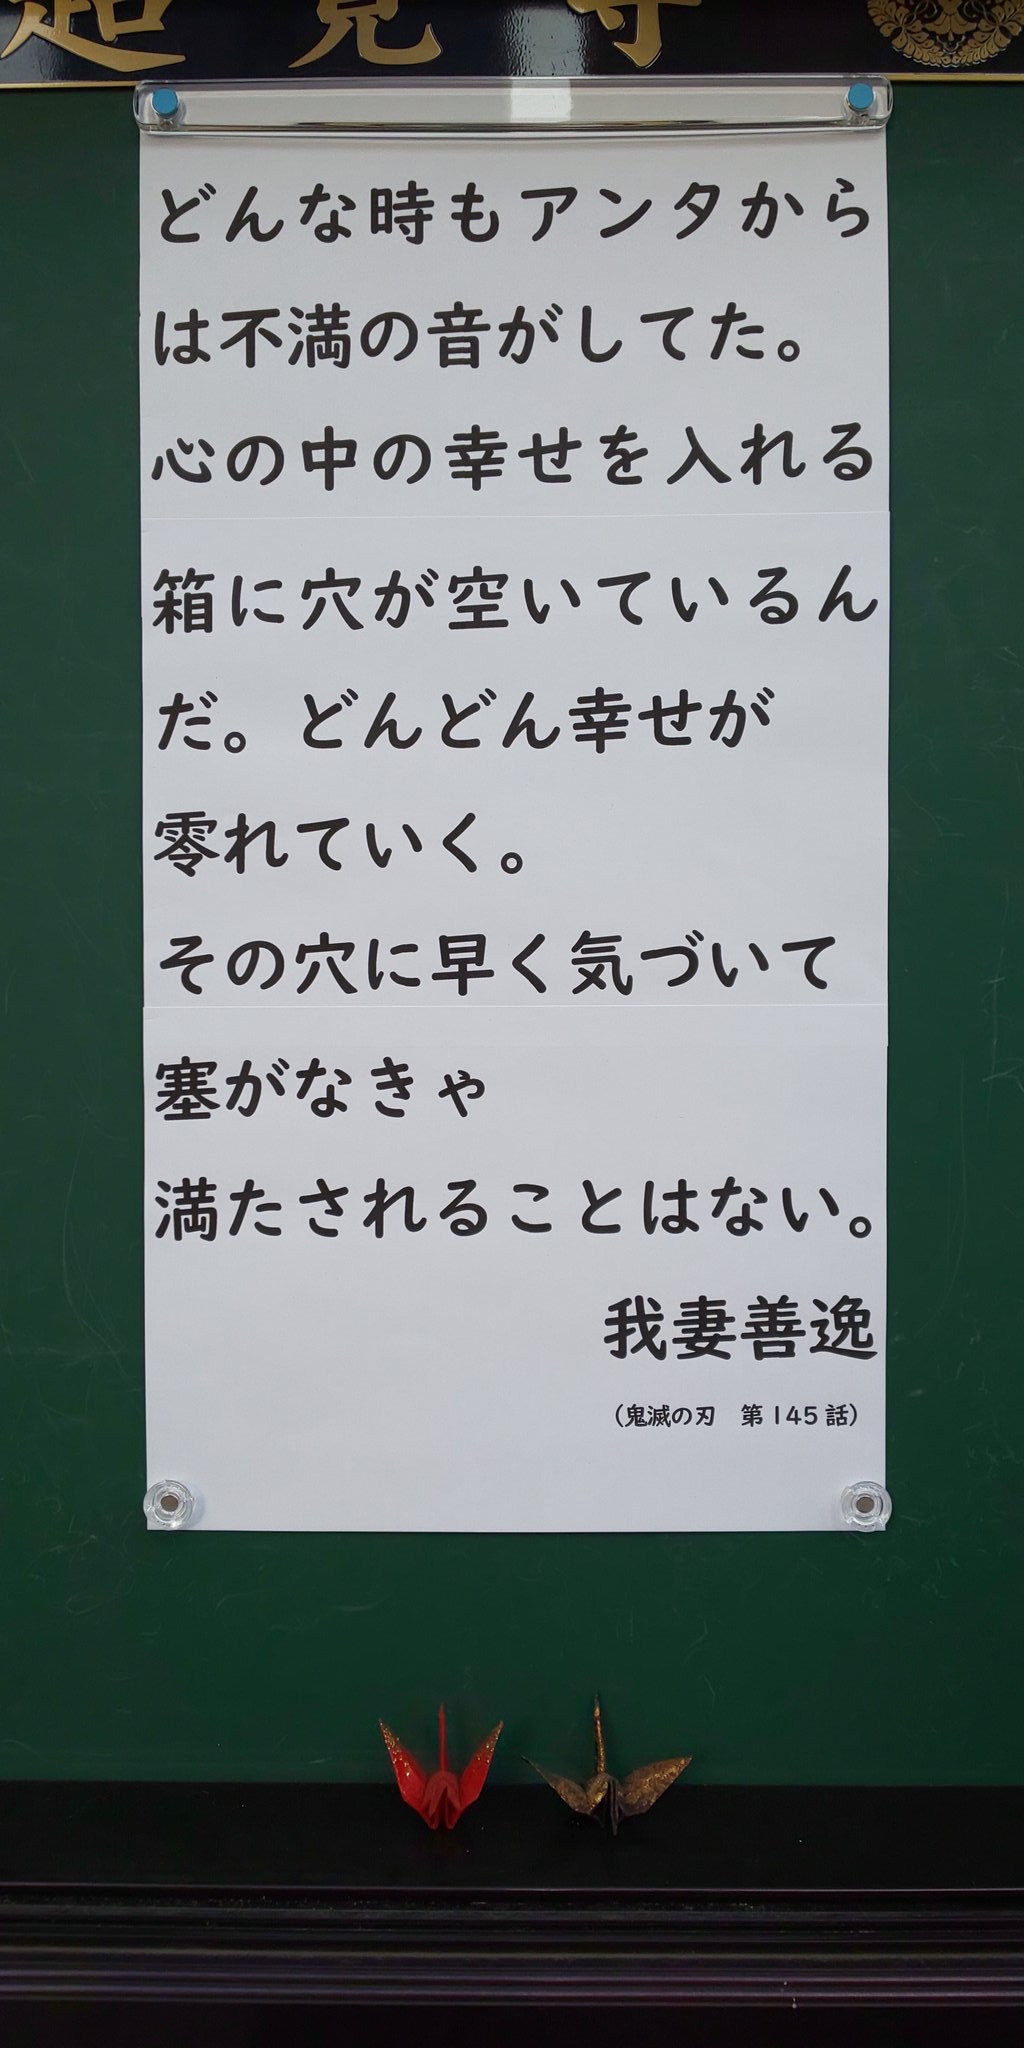 超覚寺
どんな時もアンタから
は不満の音がしてた。
心の中の幸せを入れる
箱に穴が空いているん
だ。どんどん幸せが
零れていく。
その穴に早く気づいて
塞がなきゃ
満たされることはない。
我妻善逸
（鬼滅の刃　第145話）